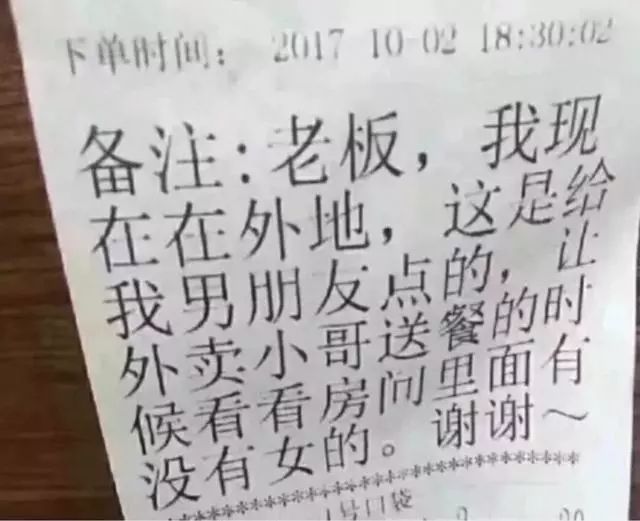 下单时间： 2017 10-02 18:30:02
备注：老板，我现
在在外地，这是给
我男朋友点的，让
外卖小哥送餐的时
候看看房间里面有
没有女的。谢谢～
****************************
1号口袋